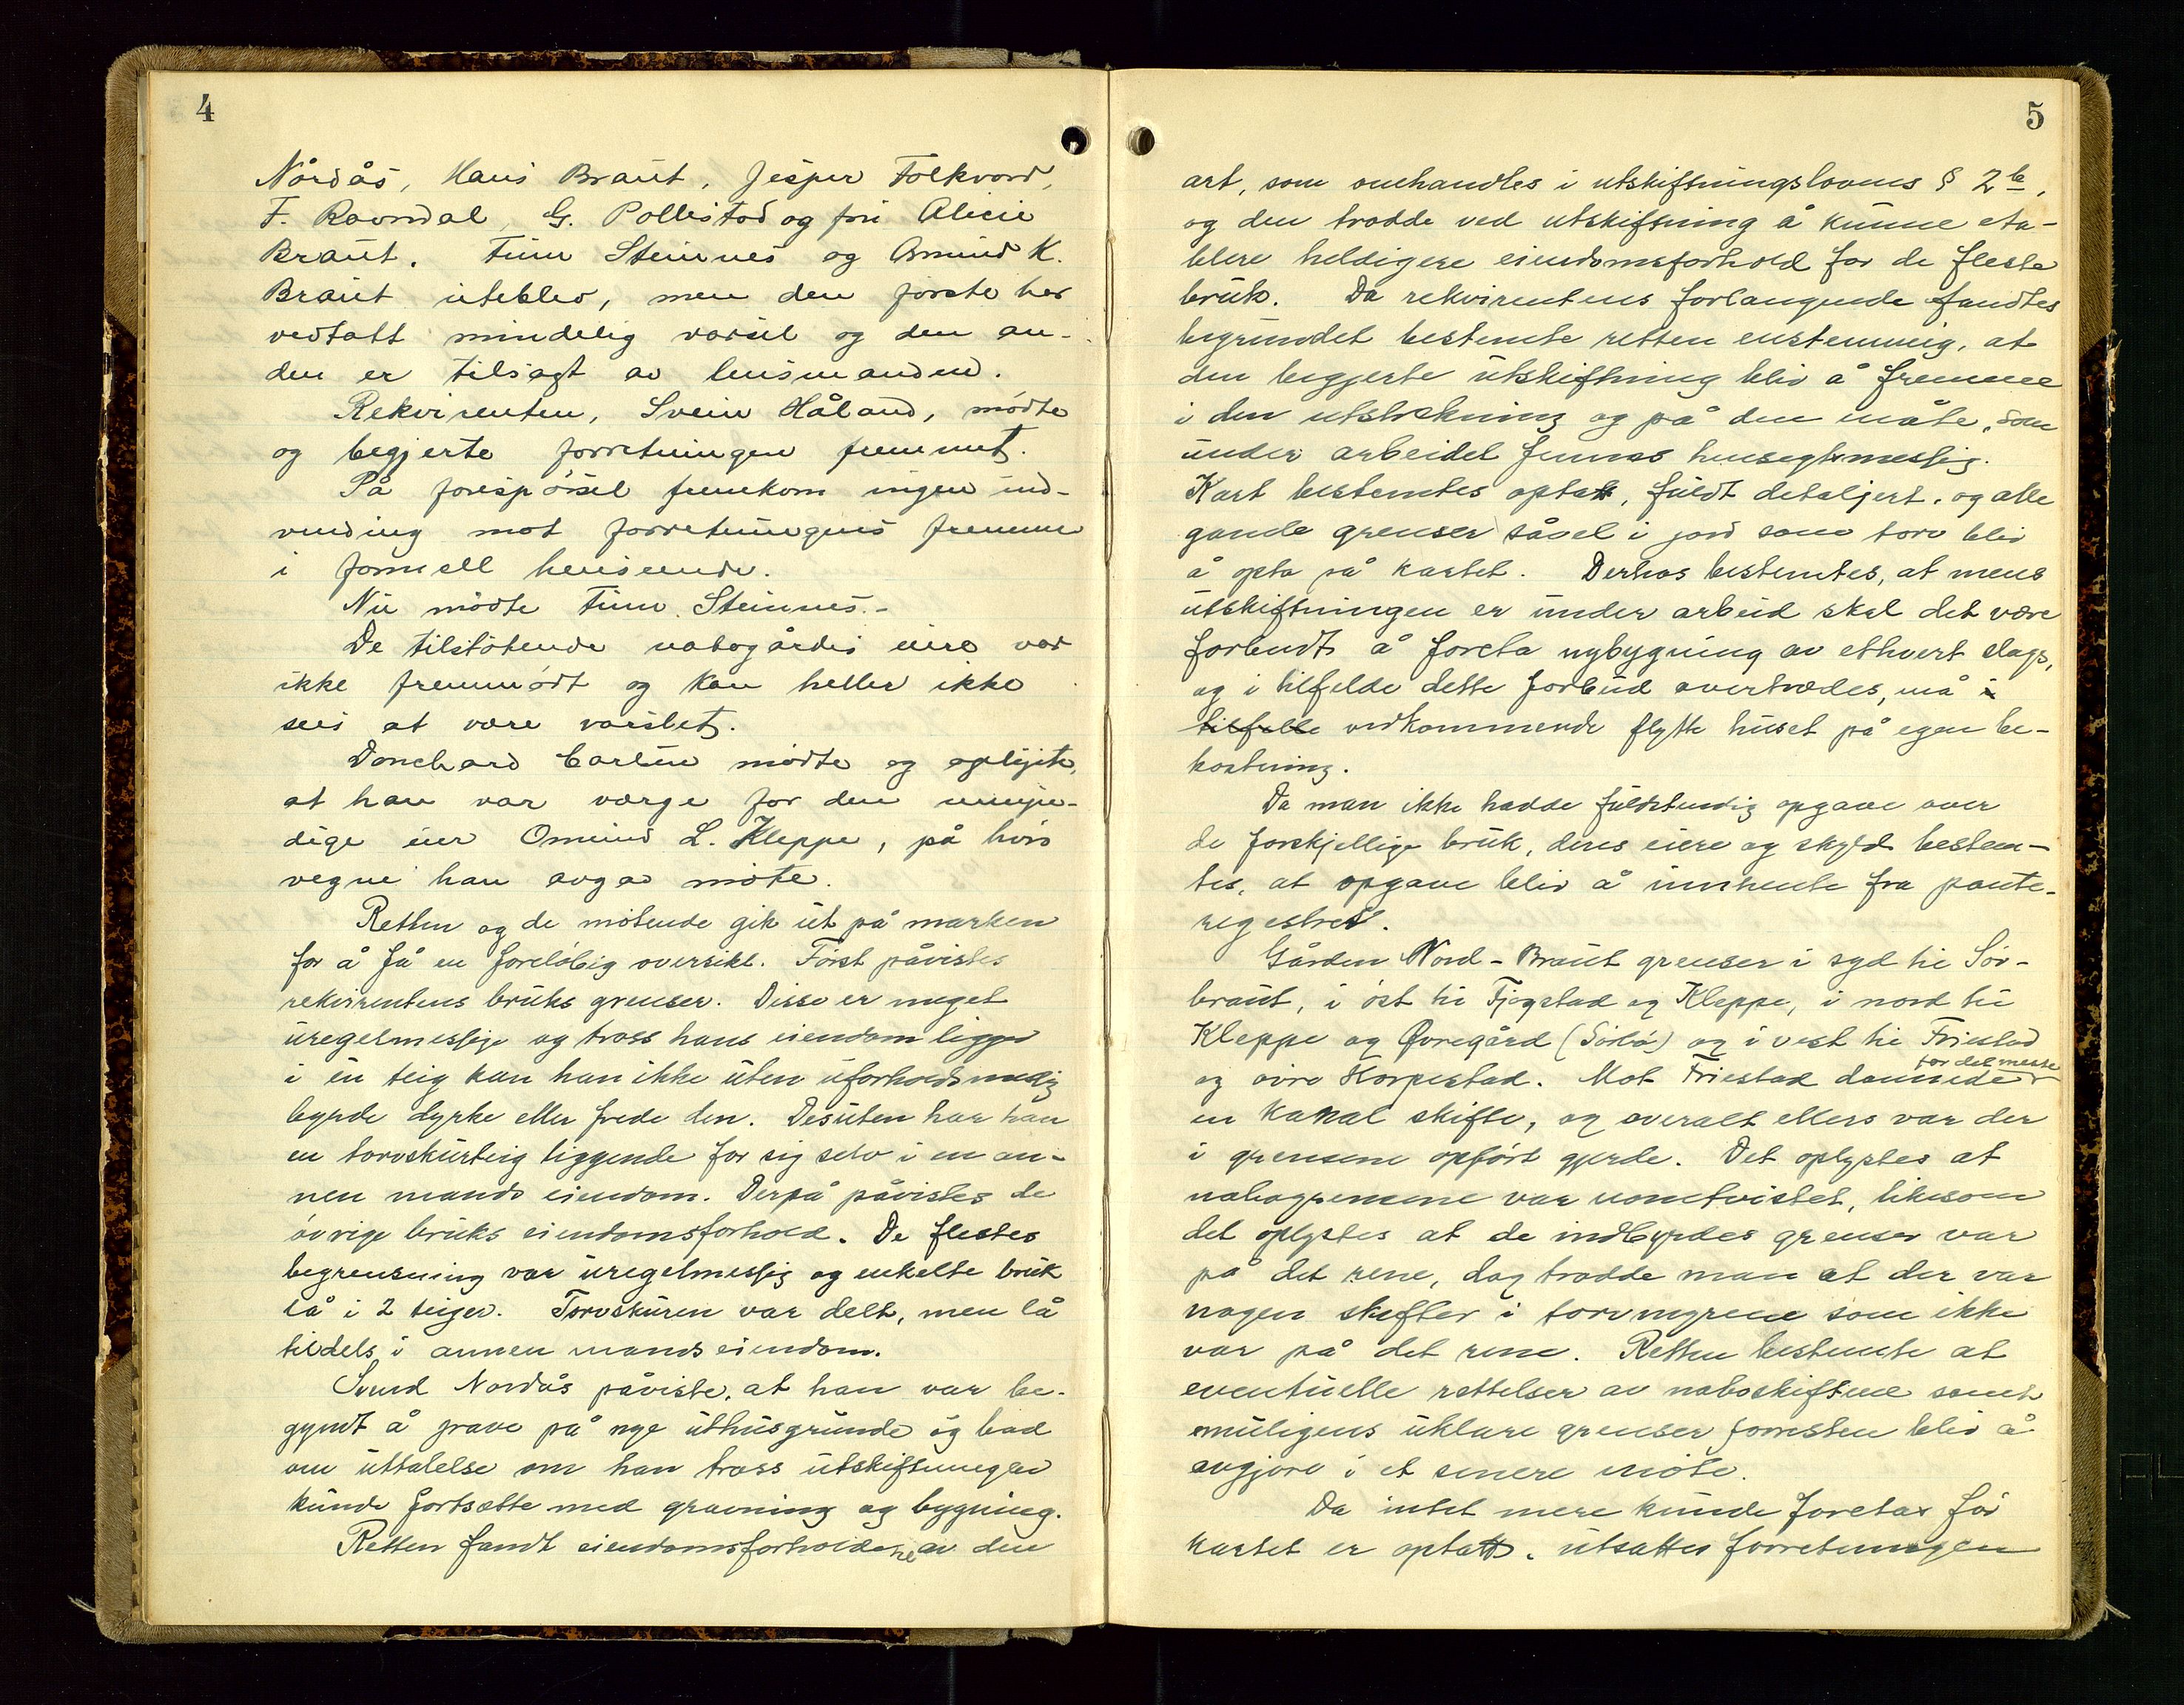 4
Nårdås, Hans Braut, Jesper Folkvord,
F. Ravndal, G. Pollestad og fru Alicie
Braut. Finn Steinnes og Osmund K.
Braut uteblev, men den første har
vedtatt mindelig varsel og den an-
den er tilsagt av lensmanden.
Rekvirenten, Svein Håland, mødte
og begjerte forretningen fremmet.
På forespørsel fremkom ingen ind-
vending mot forretningens fremme
i formell henseende.
Nu mødte Finn Steinnes.-
De tilstøtende nabogårdes eiere var
ikke fremmødt og kan heller ikke
sees at være varslet.
Donehard Carlsen mødte og oplyste,
at han var verge for den umyn-
dige eier Omund L. Kleppe, på hvis
vegne han avga møte.
Retten og de møtende gik ut på marken
for å få en foreløbig oversikt. Først påvistes
rekvirentens bruks grenser. Disse er meget
uregelmessige og tross hans eiendom ligger
i en teig kan han ikke uten uforholdsmessig
byrde dyrke eller frede den. Desuten har han
en torvskurteig liggende for sig selv i en an-
nen mands eiendom. Derpå påvistes de
øvrige bruks eiendomsforhold. De flestes
begrensning var uregelmessig og enkelte bruk
lå i 2 teiger. Torvskuren var delt, men lå
tildels i annen mands eiendom.
Svend Nordås påviste, at han var be-
gyndt å grave på nye uthusgrunde og bad
om uttalelse om han tross utskiftningen
kunde fortsætte med gravning og bygning.
Retten fandt eiendomsforholdene av den
5
art, som omhandles i utskiftningslovens § 2 b,
og den trodde ved utskiftning å kunne eta-
blere heldigere eiendomsforhold for de fleste
bruk. Da rekvirentens forlangende fandtes
begrundet bestemte retten enstemmig, at
den begjerte utskiftning blir å fremme
i den utstrekning og på den måte, som
under arbeidet finnes hensegtsmessig.
Kart bestemtes optatt, fuldt detaljert, og alle
gamle grenser såvel i jord som torv blir
å opta på kartet. Derhos bestemtes, at mens
utskiftningen er under arbeid skal det være
forbudt å foreta nybygning av ethvert slags,
og i tilfelde dette forbud overtrædes, må i
tilfelle vedkommende flytte huset på egen be-
kostning.
Da man ikke hadde fuldstendig opgave over
de forskjellige bruk, deres eiere og skyld bestem-
tes, at opgave blir å innhente fra pante-
registret.
Gården Nord-Braut grenser i syd til Sør-
braut, i øst til Fjogstad og Kleppe, i nord til
Kleppe og Øvregård (Sørbø) og i vest til Friestad
og øvre Horpestad. Mot Friestad dannede for det meste
en kanal skifte, og overalt ellers var der
i grensene opført gjerde. Det oplystes at
nabogrensene var uomtvistet, likesom
det oplystes at de indbyrdes grenser var
på det rene, dog trodde man at der var
nogen skifter i torvmyrene som ikke
var på det rene. Retten bestemte at
eventuelle rettelser av naboskiftene samt
muligens uklare grenser forresten blir å
avgjøre i et senere møte.
Da intet mere kunde foretas før
kartet er optatt, utsattes forretningen